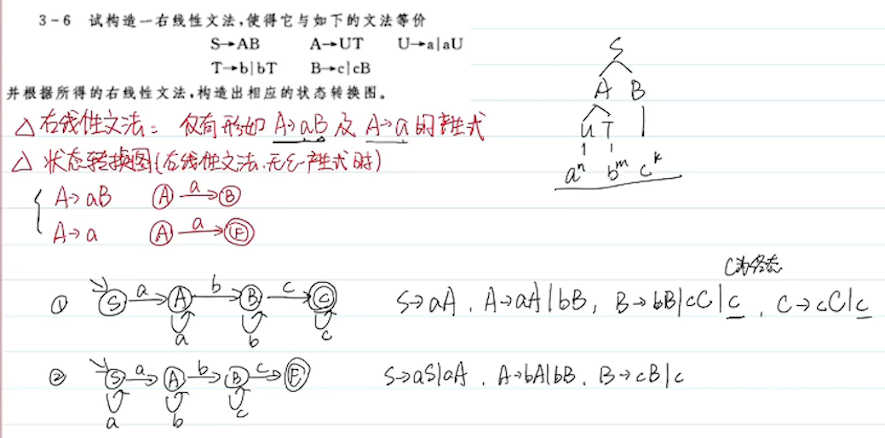 3-6 试构造一右线性文法,使得它与如下的文法等价
S→AB A→UT U→a|aU
T→b|bT B→c|cB
并根据所得的右线性文法,构造出相应的状态转换图。
S
A B
U T
aⁿ bᵐ cᵏ
△ 右线性文法: 仅有形如 A→aB 及 A→a 的产生式
△ 状态转换图(右线性文法.无ε-产生式时)
A→aB Ⓐ a Ⓑ
A→a Ⓐ a Ⓕ
C为终态
① S a A b B c C S→aA, A→aA|bB, B→bB|cC|c, C→cC|c
a b c
② S a A b B c F S→aS|aA, A→bA|bB, B→cB|c
a b c